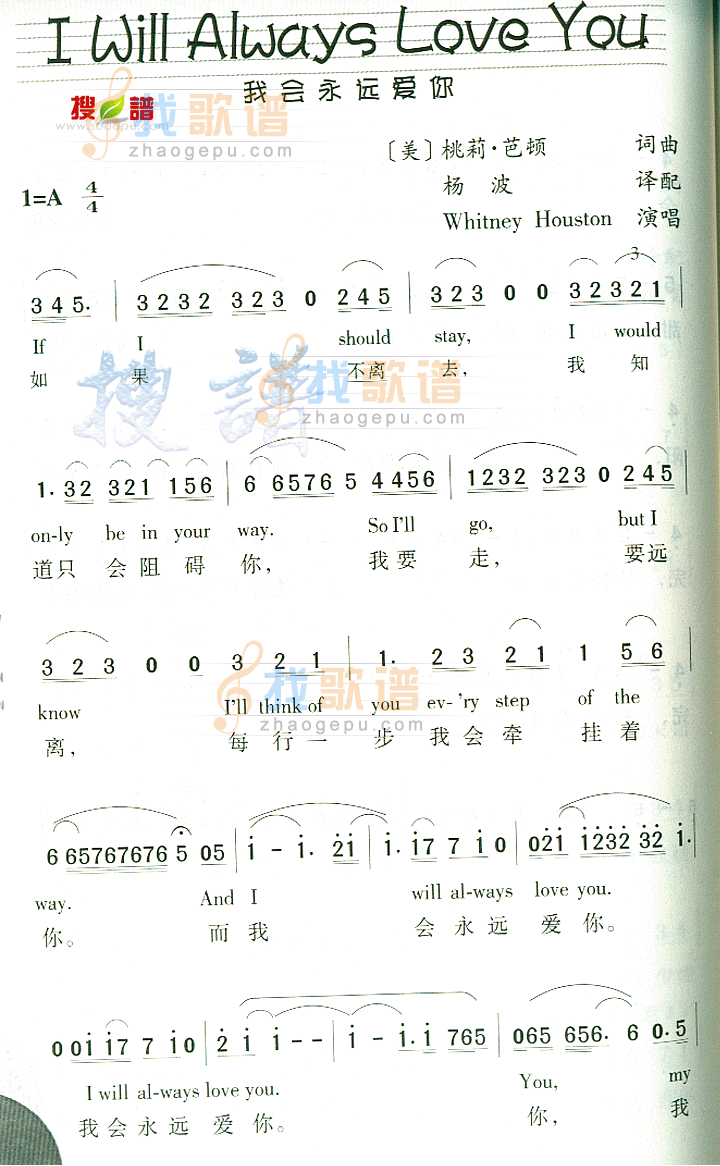 I Will Always Love You
我会永远爱你
搜 譜
www.sooopu.com
找歌谱
zhaogepu.com
〔美〕桃莉·芭顿 词曲
杨 波 译配
1=A 4/4
Whitney Houston 演唱
3 4 5. | 3 2 3 2 3 2 3 0 2 4 5 | 3 2 3 0 0 3 2 3 2 1
If I should stay, I would
如 果 不离 去, 我 知
搜譜
找歌谱
zhaogepu.com
1. 32 321 156 | 6 6576 5 4456 | 1232 323 0 245
on-ly be in your way. So I'll go, but I
道只 会阻 碍 你, 我要 走, 要远
3 2 3 0 0 3 2 1 | 1. 2 3 2 1 1 5 6
know I'll think of you ev-'ry step of the
离, 每 行 一 步 我 会 牵 挂 着
找歌谱
zhaogepu.com
6 65767676 5 05 | i - i. 2i | i. i7 7 i0 | 02i i232 32 i.
way. And I will al-ways love you.
你。 而 我 会 永 远 爱 你。
0 0i i7 7 i0 | 2 i i - - | i - i. i 765 | 065 656. 6 0.5
I will al-ways love you. You, my
我 会 永 远 爱 你。 你, 我
找歌谱
zhaogepu.com